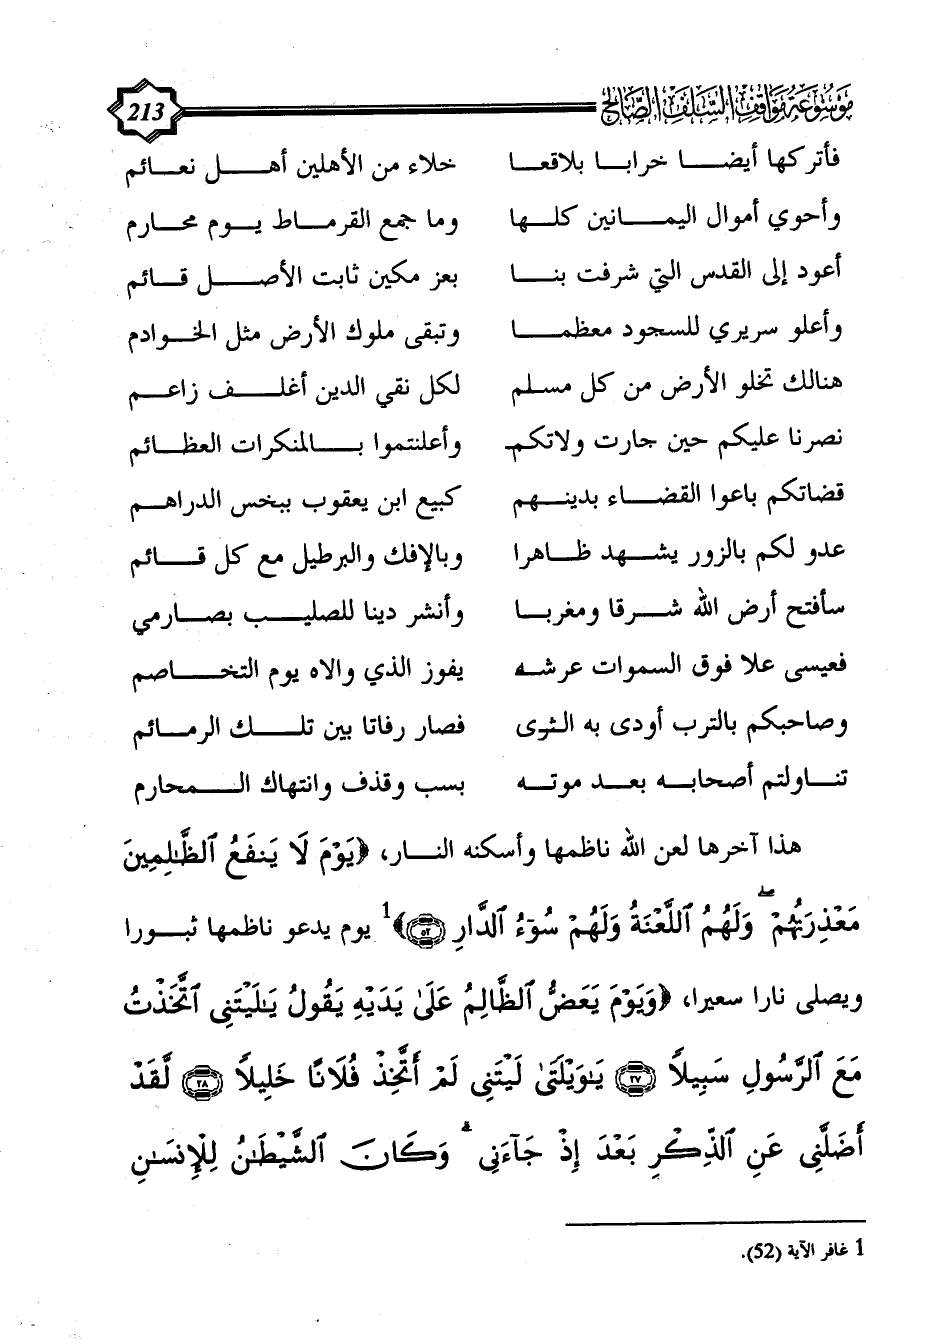 موسوعة مواقف السلف الصالح 213
فأتركها أيضـــا خرابـا بلاقعـا خلاء من الأهلين أهـــل نعـائم
وأحوي أموال اليمـــانين كلـــها وما جمع القرمـاط يـــوم محـارم
أعود إلى القدس التي شرفت بنـــا بعز مكين ثابت الأصـــل قـائم
وأعلو سريري للسجود معظمـــا وتبقى ملوك الأرض مثل الخـوادم
هنالك تخلو الأرض من كل مسـلم لكل نقي الدين أغلـــف زاعـم
نصرنا عليكم حين جارت ولاتكـم وأعلنتموا بـــالمنكرات العظـائم
قضاتكم باعوا القضـــاء بدينـهم كبيع ابن يعقوب ببخس الدراهـم
عدو لكم بالزور يشـهد ظـاهرا وبالإفك والبرطيل مع كل قـــائم
سأفتح أرض الله شـــرقا ومغربـا وأنشر دينا للصليـــب بصـارمي
فعيسى علا فوق السموات عرشـه يفوز الذي والاه يوم التخـــاصم
وصاحبكم بالترب أودى به الـثرى فصار رفاتا بين تلـــك الرمـائم
تنـاولتم أصحابـه بعـد موتـه بسب وقذف وانتهاك الـــمحارم
هذا آخرها لعن الله ناظمها وأسكنه النـــار، ﴿يَوْمَ لَا يَنفَعُ ٱلظَّٰلِمِينَ
مَعْذِرَتُهُمْ ۖ وَلَهُمُ ٱللَّعْنَةُ وَلَهُمْ سُوٓءُ ٱلدَّارِ ٥٢﴾1 يوم يدعو ناظمها ثبـورا
ويصلى نارا سعيرا، ﴿وَيَوْمَ يَعَضُّ ٱلظَّالِمُ عَلَىٰ يَدَيْهِ يَقُولُ يَٰلَيْتَنِى ٱتَّخَذْتُ
مَعَ ٱلرَّسُولِ سَبِيلًا ٢٧ يَٰوَيْلَتَىٰ لَيْتَنِى لَمْ أَتَّخِذْ فُلَانًا خَلِيلًا ٢٨ لَّقَدْ
أَضَلَّنِى عَنِ ٱلذِّكْرِ بَعْدَ إِذْ جَآءَنِى ۗ وَكَانَ ٱلشَّيْطَٰنُ لِلْإِنسَٰنِ
1 غافر الآية (52).